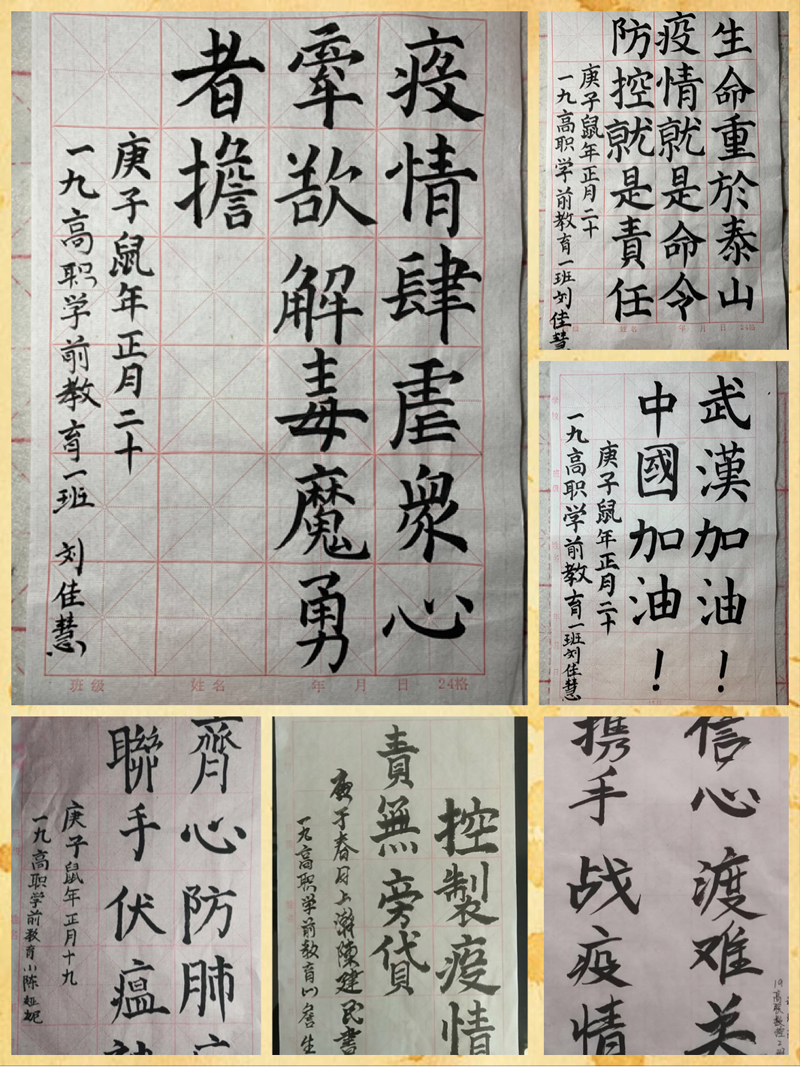 疫情肆虐衆心
牽欲解毒魔勇
者擔
庚子鼠年正月二十
一九高职学前教育一班 刘佳慧
班级 姓名 年 月 日 24格
生命重於泰山
疫情就是命令
防控就是責任
庚子鼠年正月二十
一九高职学前教育一班刘佳慧
武漢加油！
中國加油！
庚子鼠年正月二十
一九高职学前教育一班刘佳慧
齊心防肺
聯手伏瘟
庚子鼠年正月十九
一九高职学前教育小陈娅妮
控製疫情
責無旁貸
庚子春月上瀚陳建民書
一九高职学前教育
信心渡难关
携手战疫情